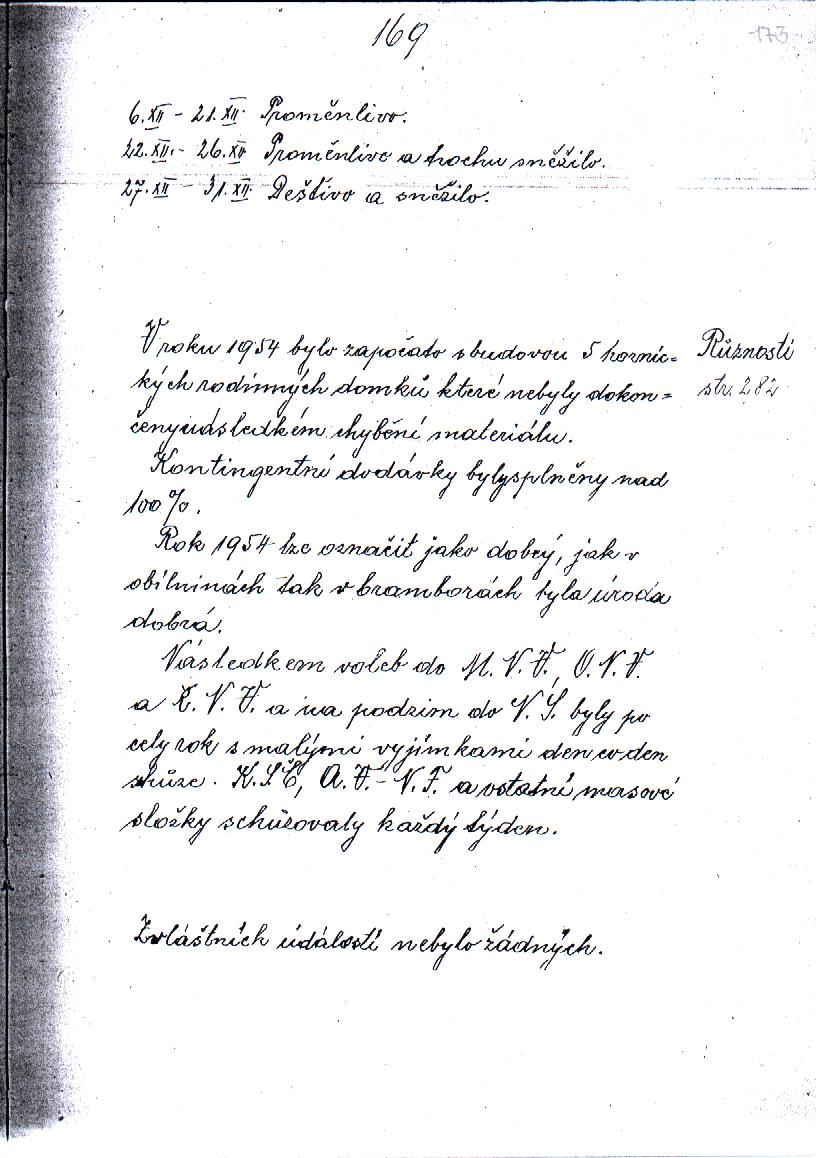 169
173
6.XII - 21.XII. Proměnlivo.
22.XII. - 26.XII Proměnlivo a trochu sněžilo.
27.XII - 31.XII. Deštivo a sněžilo.
V roku 1954 bylo započato s budovou 5 hornic=
kých rodinných domků které nebyly dokon=
čeny následkém chybění materiálu.
Kontingentní dodávky byly splněny nad
100%.
Rok 1954 lze označit jako dobrý, jak v
obilninách tak v bramborách byla úroda
dobrá.
Následkem voleb do M.N.V., O.N.V.
a K.N.V. a na podzim do N.S. byly po
celý rok s malými vyjímkami den co den
shůze. K.S.Č, A.V.-N.F. a ostatní masové
složky schůzovaly každý týden.
Zvláštních událostí nebylo žádných.
Různosti
str. 282